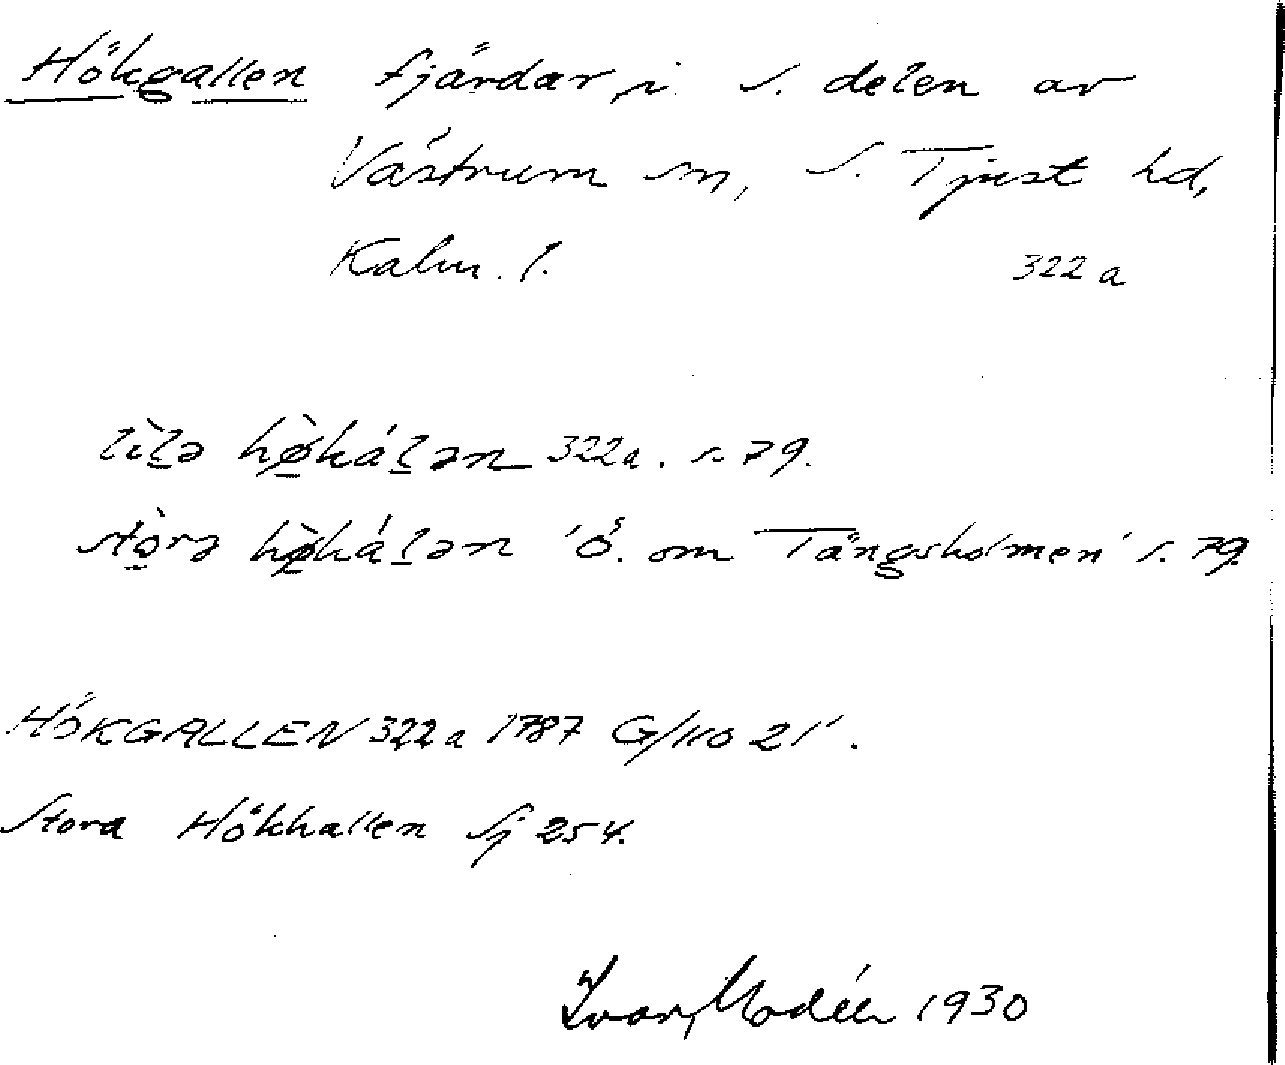 Hökgallen fjärdar, i S. delen av
Västrum sn, S. Tjust hd,
Kalm. l. 322 a
lìl̠ə hø̠̀kál̠ən 322a. s. 79.
stò̠rə hø̠̀kál̠ən 'Ö. om Tängsholmen' s. 79.
HÖKGALLEN 322a 1787 G/110 21'.
Stora Hökhallen Sj 254.
Ivar Modéer 1930